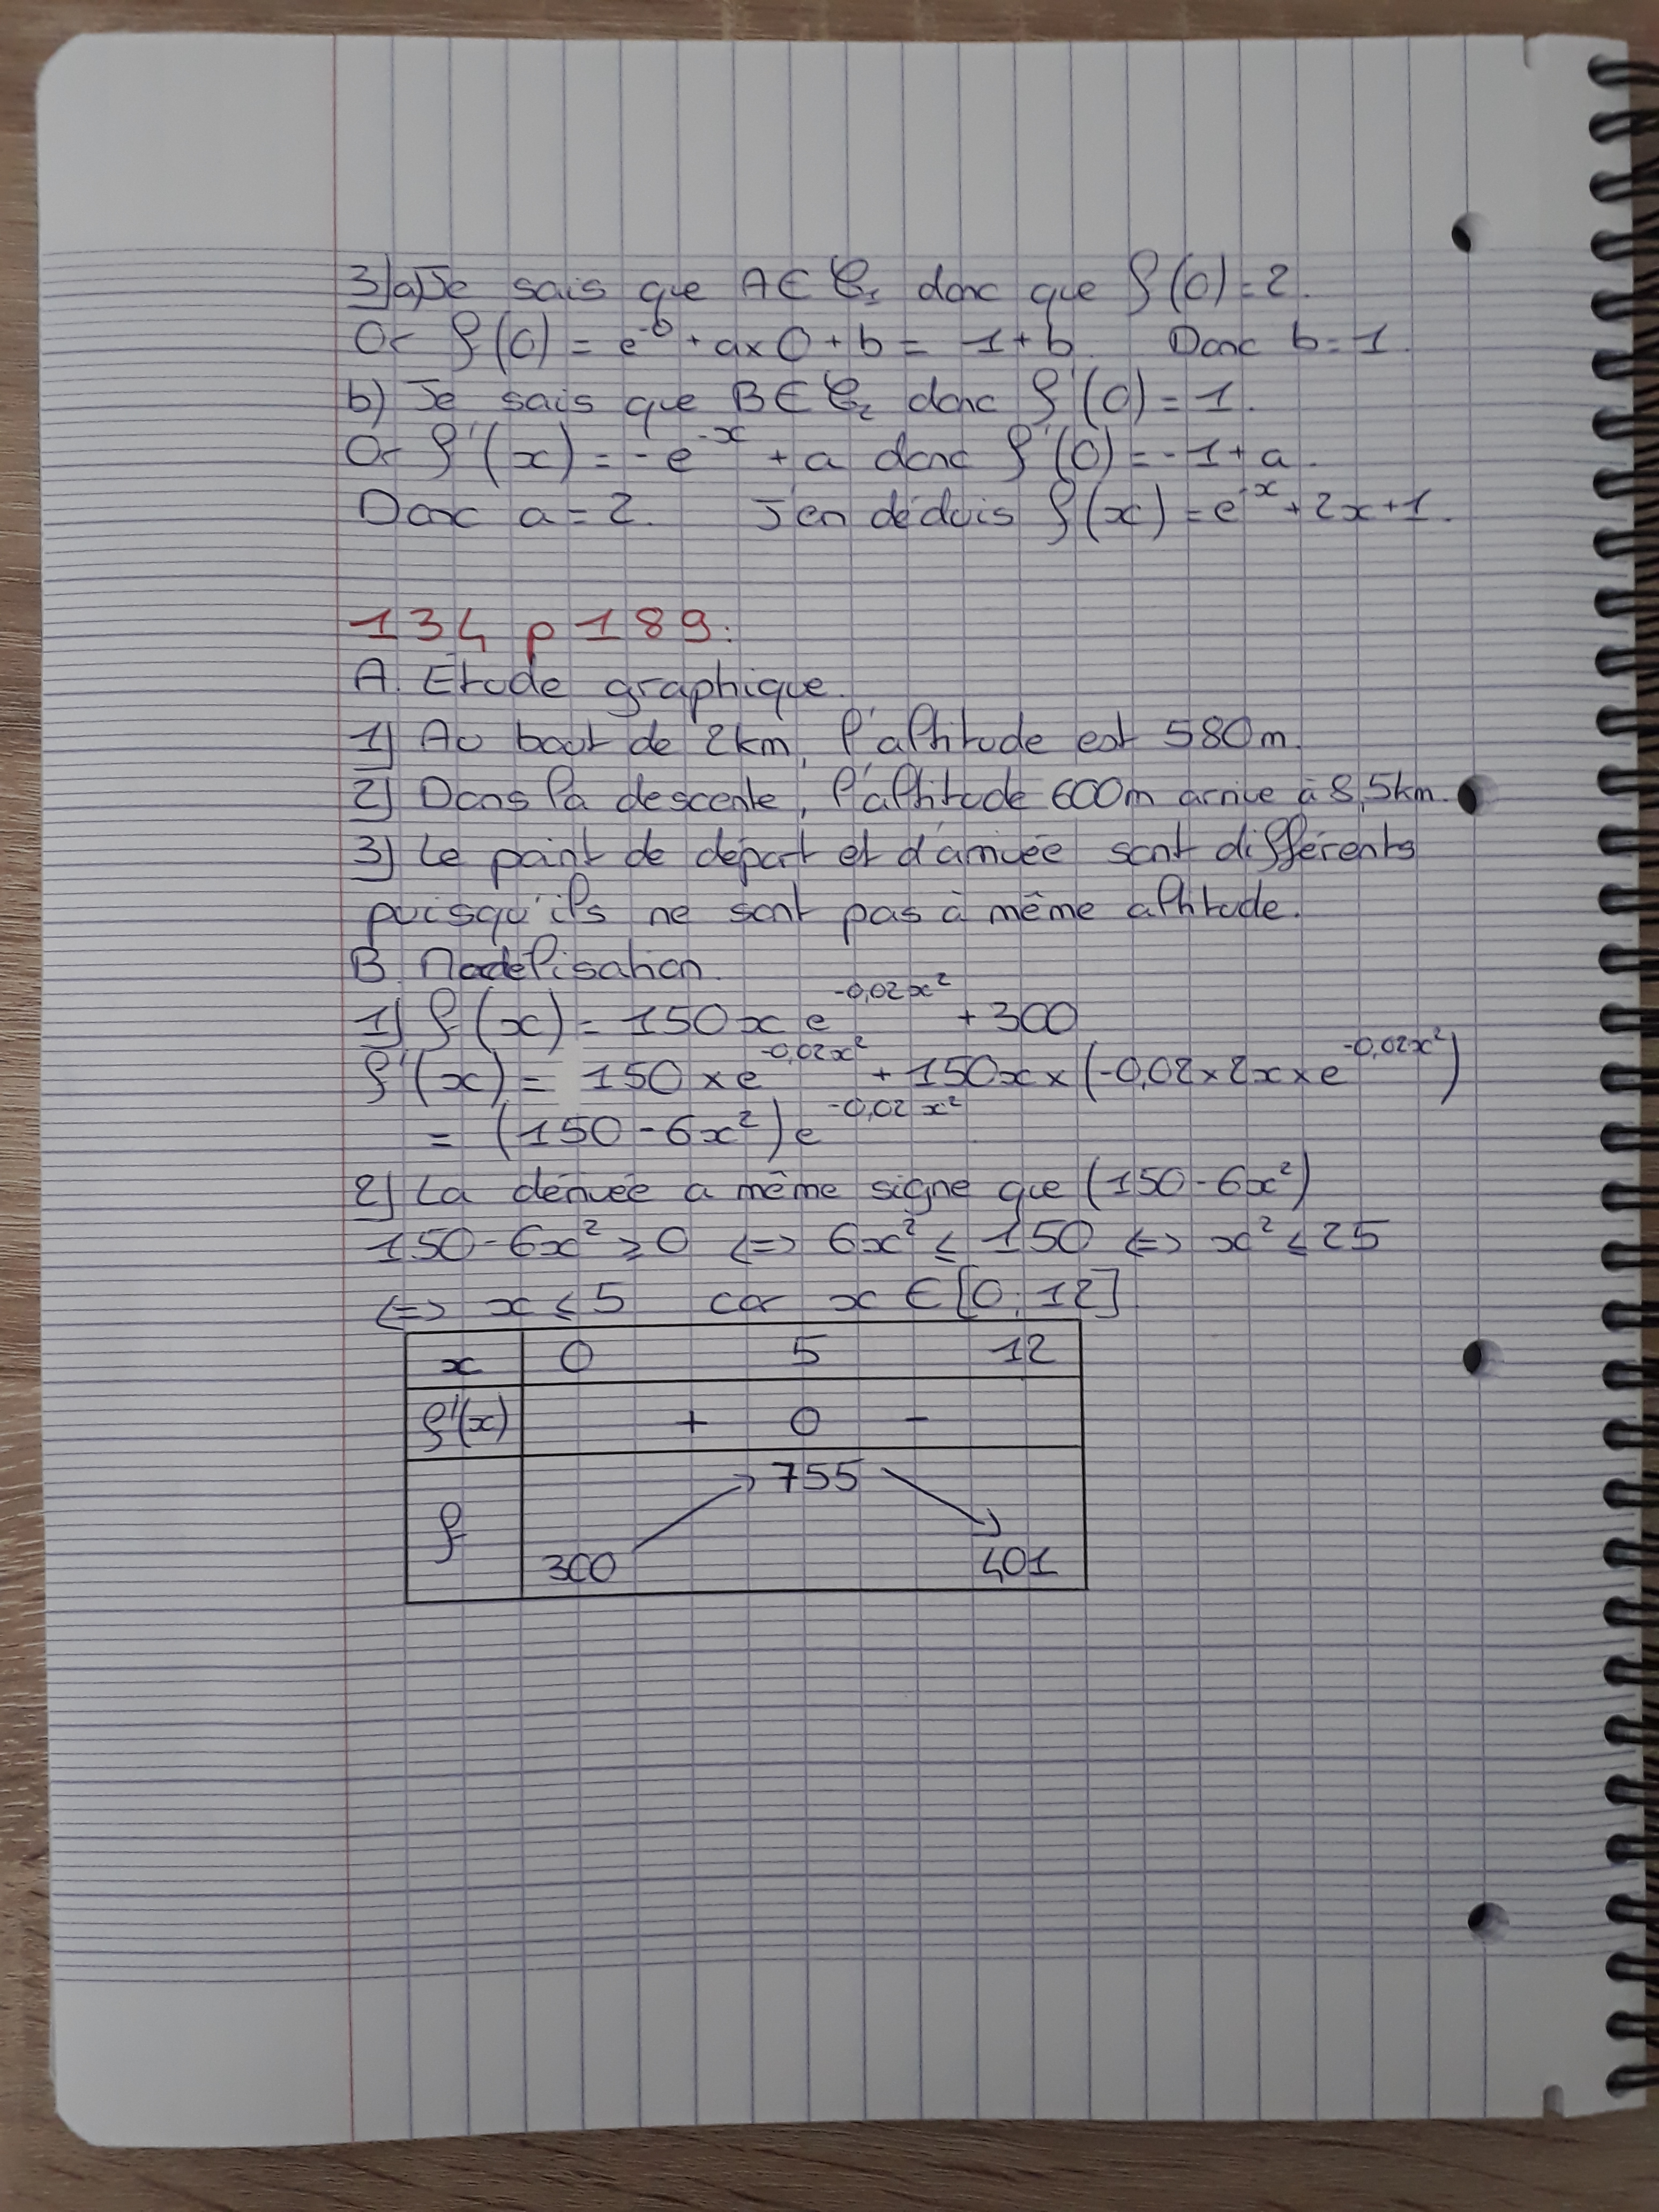 3) a) Je sais que A ∈ 𝒞₁ donc que f(0) = 2.
Or f(0) = e⁻⁰ + a×0 + b = 1 + b. Donc b = 1.
b) Je sais que B ∈ 𝒞₂ donc f'(0) = 1.
Or f'(x) = -e⁻ˣ + a donc f'(0) = -1 + a.
Donc a = 2. J'en déduis f(x) = e⁻ˣ + 2x + 1.
134 p 189:
A. Etude graphique.
1) Au bout de 2km, l'altitude est 580m.
2) Dans la descente, l'altitude 600m arrive à 8,5km.
3) Le point de départ et d'arrivée sont différents
puisqu'ils ne sont pas à même altitude.
B. Modélisation.
1) f(x) = 150x e^(-0,02x²) + 300
f'(x) = 150 × e^(-0,02x²) + 150x × (-0,02 × 2x × e^(-0,02x²))
= (150 - 6x²) e^(-0,02x²)
2) La dérivée a même signe que (150 - 6x²)
150 - 6x² ⩾ 0 ⇔ 6x² ⩽ 150 ⇔ x² ⩽ 25
⇔ x ⩽ 5 car x ∈ [0; 12]
x 0 5 12
f'(x) + 0 -
f 300 ↗ 755 ↘ 401